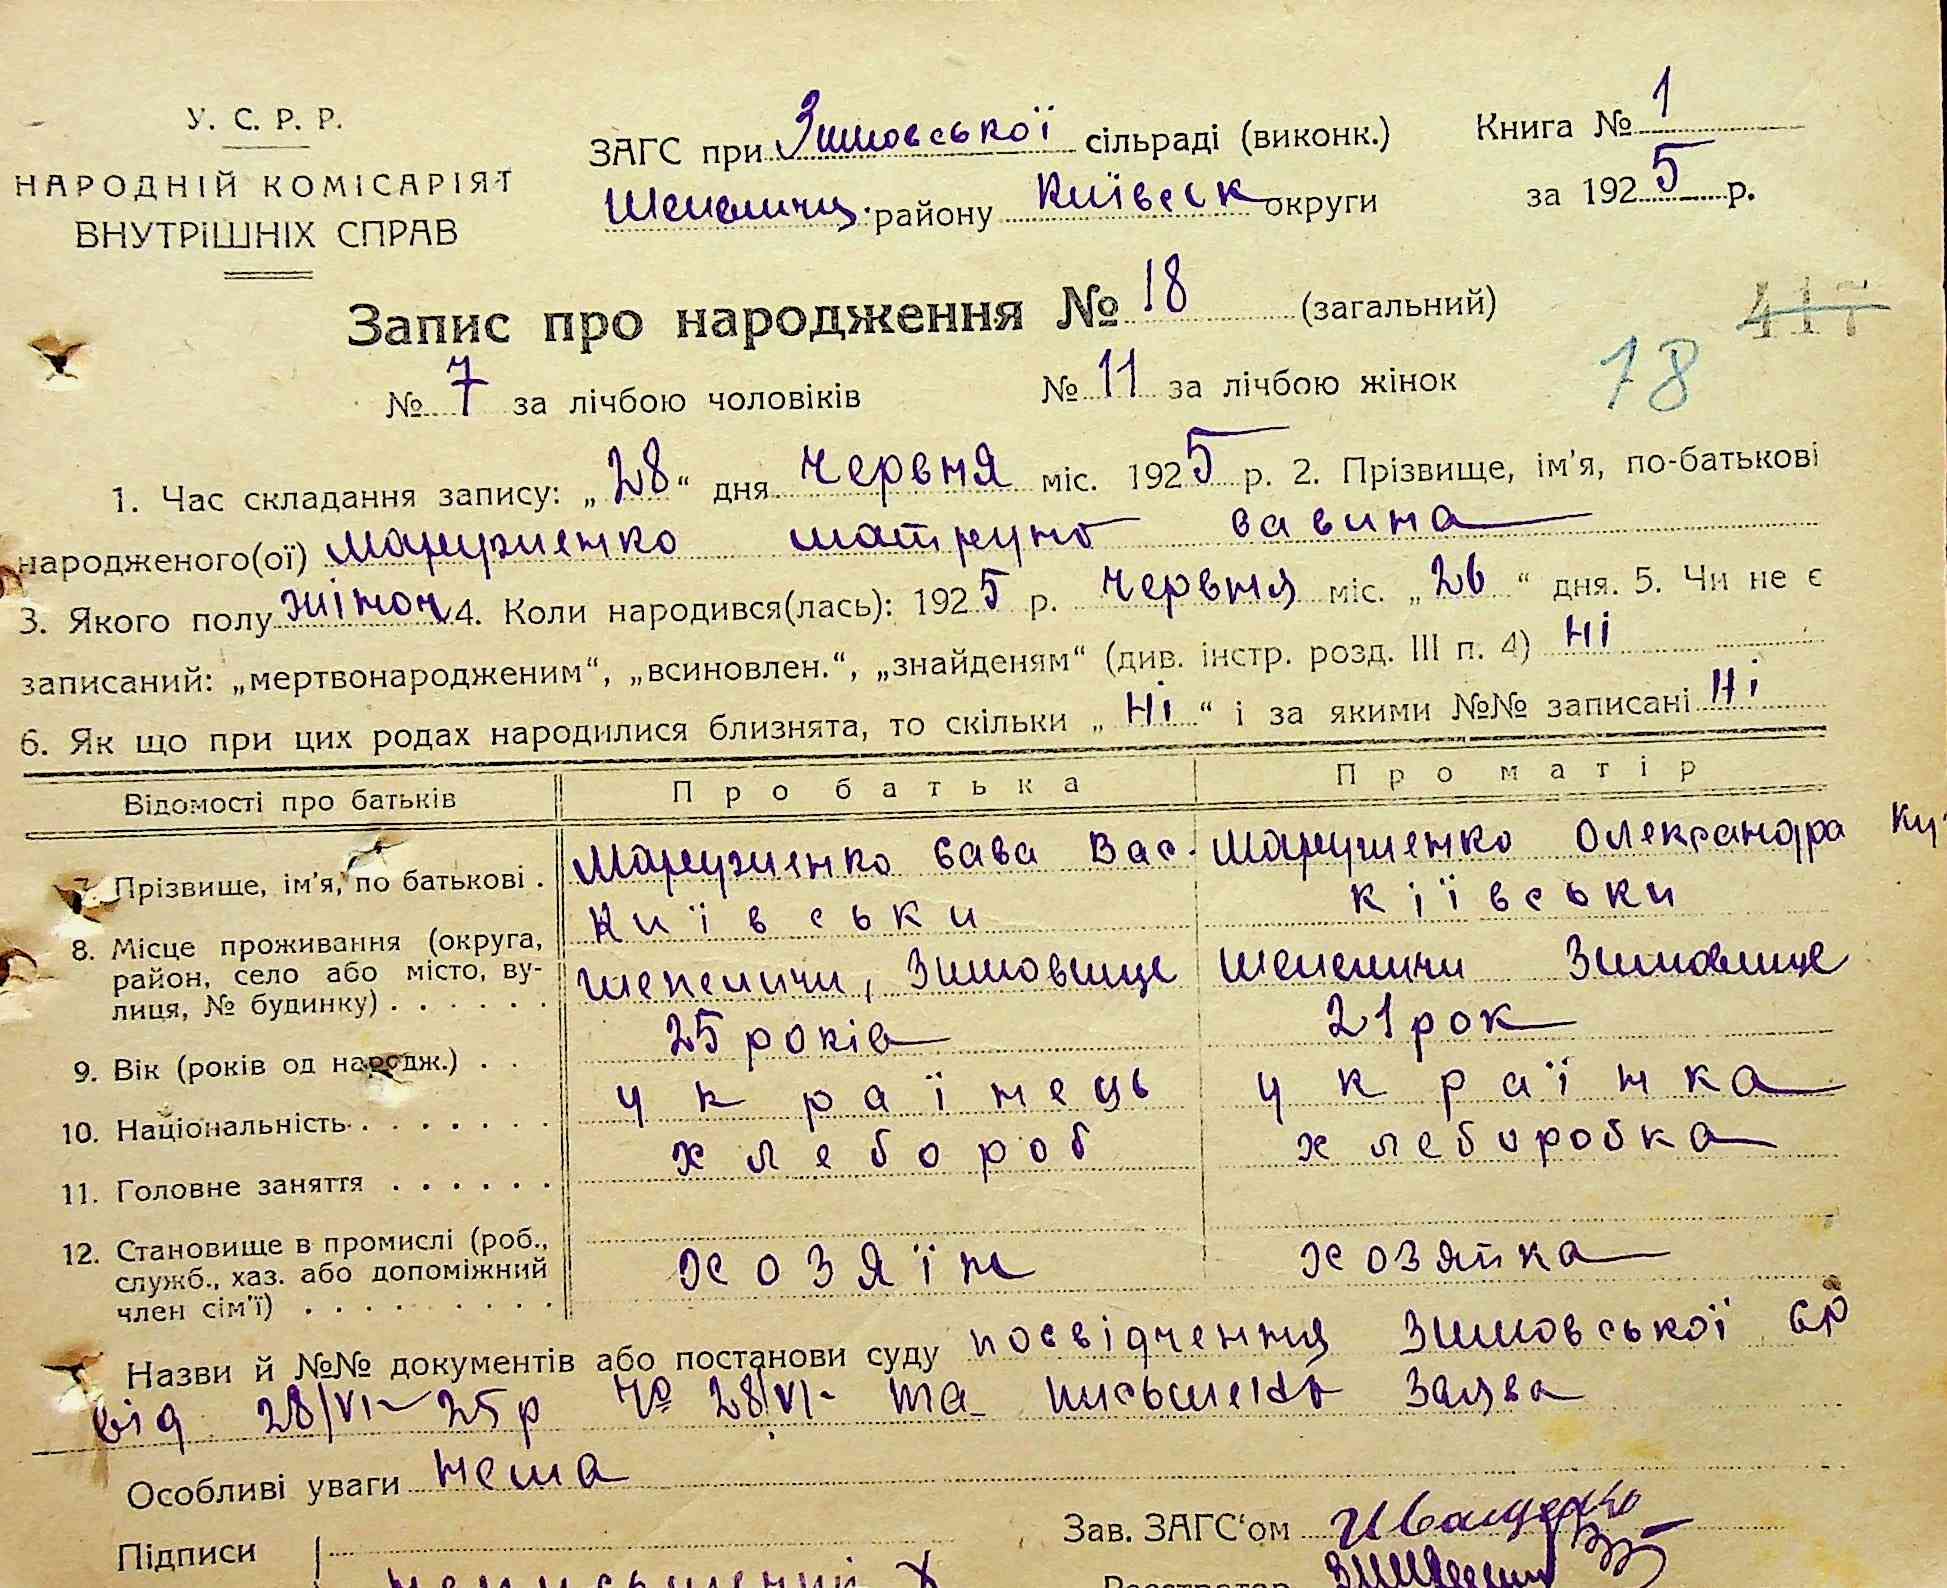 У. С. Р. Р.
НАРОДНІЙ КОМІСАРІЯТ
ВНУТРІШНІХ СПРАВ
ЗАГС при Зимовської сільраді (виконк.)
Шепеличц. району Київськ округи
Книга № 1
за 1925 р.
Запис про народження № 18 (загальний)
417
18
№ 7 за лічбою чоловіків № 11 за лічбою жінок
1. Час складання запису: „28“ дня червня міс. 1925 р. 2. Прізвище, ім'я, по-батькові
народженого(ої) Марушенко матруно савина
3. Якого полу жіноч 4. Коли народився(лась): 1925 р. червня міс. „26“ дня. 5. Чи не є
записаний: „мертвонародженим“, „всиновлен.“, „знайденям“ (див. інстр. розд. III п. 4) ні
6. Як що при цих родах народилися близнята, то скільки „ні“ і за якими №№ записані ні
Відомості про батьків Про батька Про матір
7. Прізвище, ім'я, по батькові . Марушенко Сава Вас. Марушенко Олександра
8. Місце проживання (округа, район, село або місто, вулиця, № будинку) . . . . . .
Київськи кіївськи
шепеличи, Зимовище шепеличи Зимовище
9. Вік (років од народж.) . . 25 років 21 рок
10. Національність . . . . . . . українець українка
11. Головне заняття . . . . . . хлебороб хлеборобка
12. Становище в промислі (роб., служб., хаз. або допоміжний член сім'ї) . . . . . . . . . хозяїн хозяйка
Назви й №№ документів або постанови суду посвідчення Зимовської ср
від 28/VI-25р № 28/VI- та заява
Особливі уваги нема
Зав. ЗАГС'ом Иващенко
Підписи
неписьменний х
Реєстратор